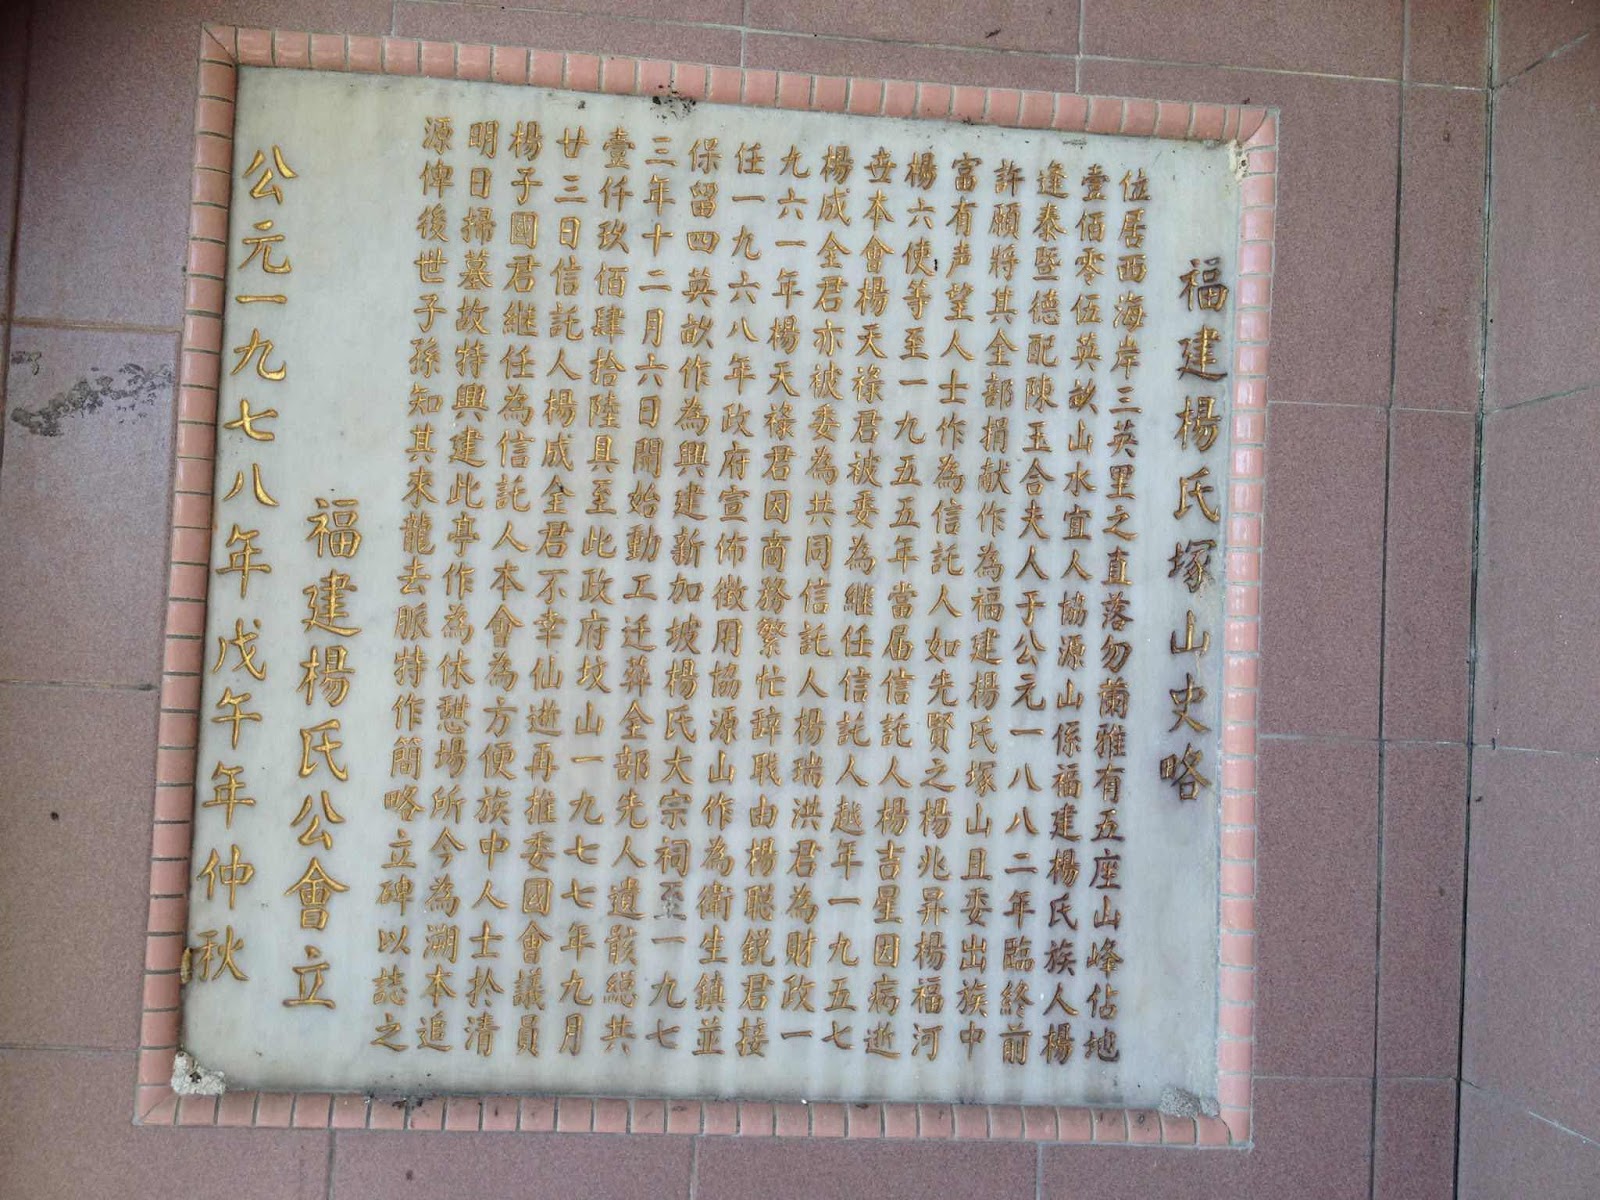 福建楊氏塚山史略
位居西海岸三英里之直落勿蘭雅有五座山峰佔地
壹佰零伍英畝山水宜人協源山係福建楊氏族人楊
逢泰暨德配陳玉合夫人于公元一八八二年臨終前
許願將其全部捐献作為福建楊氏塚山且委出族中
富有声望人士作為信託人如先賢之楊兆昇楊福河
楊六使等至一九五五年當届信託人楊吉星因病逝
世本會楊天祿君被委為継任信託人越年一九五七
楊成全君亦被委為共同信託人楊瑞洪君為財政一
九六一年楊天祿君因商務繁忙辞戢由楊聪銳君接
任一九六八年政府宣佈徵用協源山作為衛生鎮並
保留四英畝作為興建新加坡楊氏大宗祠至一九七
三年十二月六日開始動工迁葬全部先人遺骸総共
壹仟玖佰肆拾陸具至此政府坟山一九七七年九月
廿三日信託人楊成全君不幸仙逝再推委國會議員
楊子國君継任為信託人本會為方便族中人士於清
明日掃墓故特興建此亭作為休憇場所今為溯本追
源俾後世子孫知其來龍去脈特作簡略立碑以誌之
福建楊氏公會立
公元一九七八年戊午年仲秋